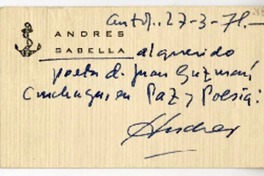 Antof. 27-3-78.-
ANDRES
SABELLA al querido
poeta d. Juan Guzmán
Cruchaga, en Paz y Poesía:
Andrés